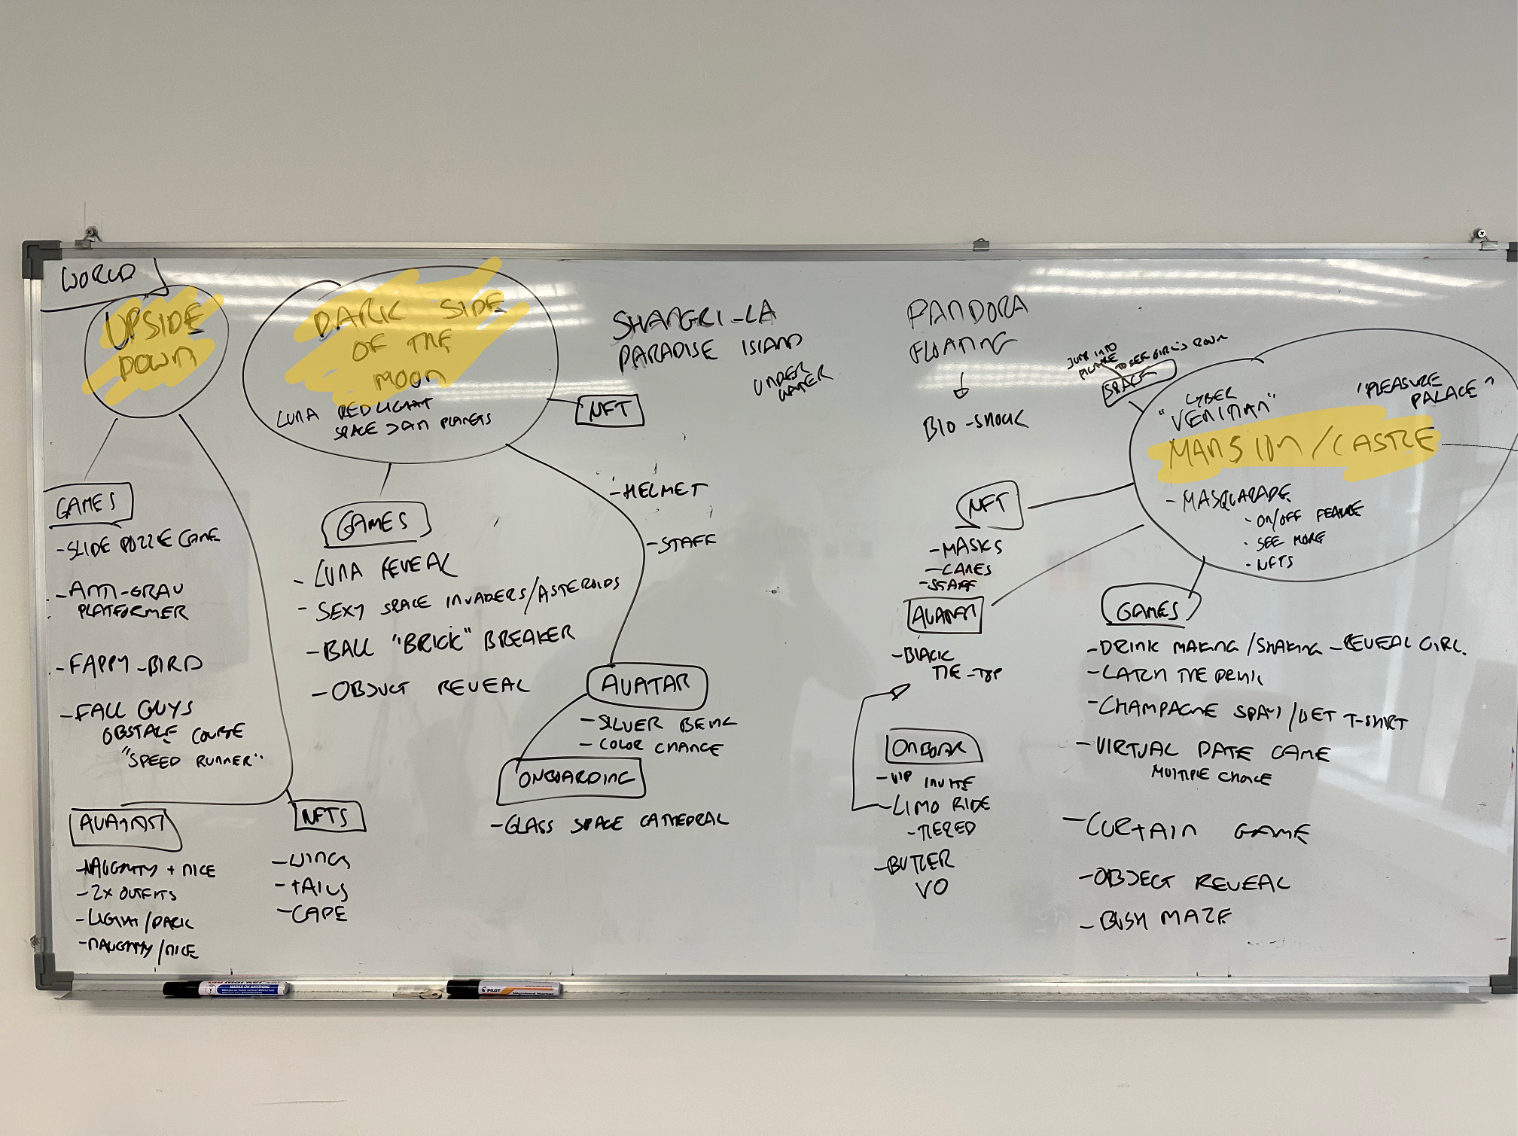 WORLD
UPSIDE
DOWN
GAMES
- SLIDE PUZZLE GAME
- ANTI-GRAV
PLATFORMER
- FAPPY-BIRD
- FALL GUYS
OBSTACLE COURSE
"SPEED RUNNER"
AVATAR
- NAUGHTY + NICE
- 2X OUTFITS
- LIGHT/DARK
- NAUGHTY/NICE
NFTS
- WINGS
- TAILS
- CAPE
DARK SIDE
OF THE
MOON
LUNA RED LIGHT
SPACE JAM PLANETS
NFT
- HELMET
- STAFF
GAMES
- LUNA REVEAL
- SEXY SPACE INVADERS/ASTEROIDS
- BALL "BRICK" BREAKER
- OBJECT REVEAL
AVATAR
- SILVER BEING
- COLOR CHANGE
ONBOARDING
- GLASS SPACE CATHEDRAL
SHANGRI-LA
PARADISE ISLAND
UNDER
WATER
PANDORA
FLOATING
BIO-SHOCK
JUMP INTO
PICTURE TO SEE GIRL'S ROOM
SPACE
CYBER
"VENITIAN"
"PLEASURE
PALACE"
MANSION/CASTLE
- MASQUARADE
- ON/OFF FEATURE
- SEE MORE
- NFTS
NFT
- MASKS
- CANES
- STAFF
AVATAR
- BLACK
TIE - TOP
ONBOAR
- VIP INVITE
- LIMO RIDE
- TIERED
- BUTLER
VO
GAMES
- DRINK MAKING/SHAKING - REVEAL GIRL.
- CATCH THE DRINK
- CHAMPAGNE SPRAY/WET T-SHIRT
- VIRTUAL DATE GAME
MULTIPLE CHOICE
- CURTAIN GAME
- OBJECT REVEAL
- BUSH MAZE
PILOT